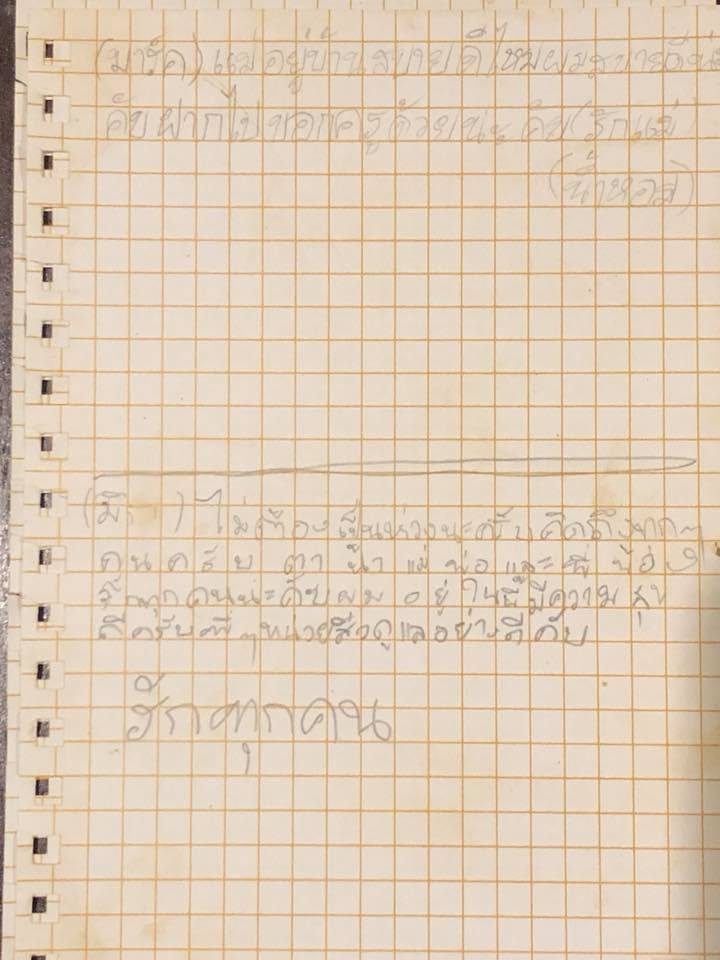 (มาร์ค) แม่อยู่บ้านสบายดีไหมผมสบายดี
คับฝากไปบอกครูด้วยนะคับ(รักแม่)
(น้ำหอม)
(มิ ) ไม่ต้องเป็นห่วงนะครับคิดถึงทุกๆ
คนครับ ตา น้า แม่ พ่อ และ พี่ น้อง
รักทุกคนนะคับผมอยู่ในนี้มีความสุข
ดีครับพี่ๆหน่วยซีวดูแลอย่างดีคับ
รักทุกคน